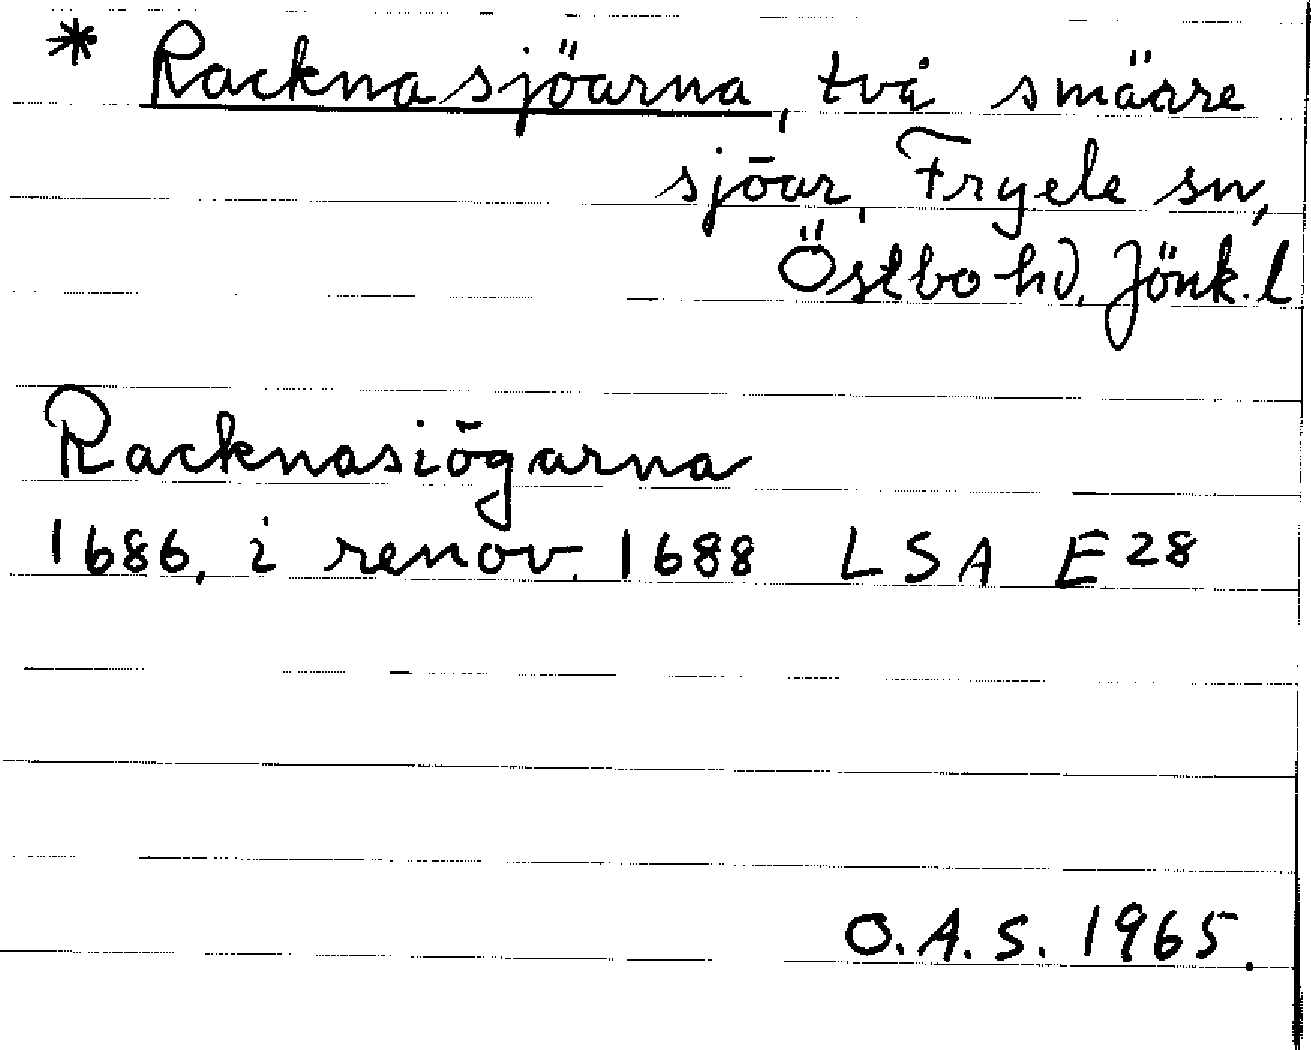 * Racknasjöarna, två smärre
sjöar, Fryele sn,
Östbo hd, Jönk. l
Racknasiögarna
1686, i renov. 1688 LSA E28
O.A.S. 1965.